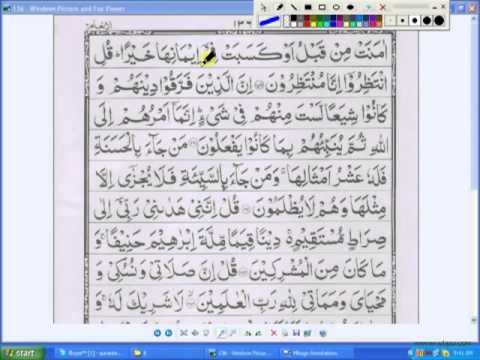 136 - Windows Picture and Fax Viewer
الانعام
١٣٦
اٰمَنَتْ مِنْ قَبْلُ اَوْ كَسَبَتْ فِيْٓ اِيْمَانِهَا خَيْرًا ؕ قُلِ
انْتَظِرُوْٓا اِنَّا مُنْتَظِرُوْنَ ۝ اِنَّ الَّذِيْنَ فَرَّقُوْا دِيْنَهُمْ وَ
كَانُوْا شِيَعًا لَّسْتَ مِنْهُمْ فِيْ شَيْءٍ ؕ اِنَّمَآ اَمْرُهُمْ اِلَى
اللّٰهِ ثُمَّ يُنَبِّئُهُمْ بِمَا كَانُوْا يَفْعَلُوْنَ ۝ مَنْ جَآءَ بِالْحَسَنَةِ
فَلَهٗ عَشْرُ اَمْثَالِهَا ۚ وَمَنْ جَآءَ بِالسَّيِّئَةِ فَلَا يُجْزٰٓى اِلَّا
مِثْلَهَا وَهُمْ لَا يُظْلَمُوْنَ ۝ قُلْ اِنَّنِيْ هَدٰىنِيْ رَبِّيْٓ اِلٰى
صِرَاطٍ مُّسْتَقِيْمٍ ۚ دِيْنًا قِيَمًا مِّلَّةَ اِبْرٰهِيْمَ حَنِيْفًا ۚ وَ
مَا كَانَ مِنَ الْمُشْرِكِيْنَ ۝ قُلْ اِنَّ صَلَاتِيْ وَنُسُكِيْ وَ
مَحْيَايَ وَمَمَاتِيْ لِلّٰهِ رَبِّ الْعٰلَمِيْنَ ۝ لَا شَرِيْكَ لَهٗ ۚ وَ
start
136 - Windows Pictur...
9:41 AM